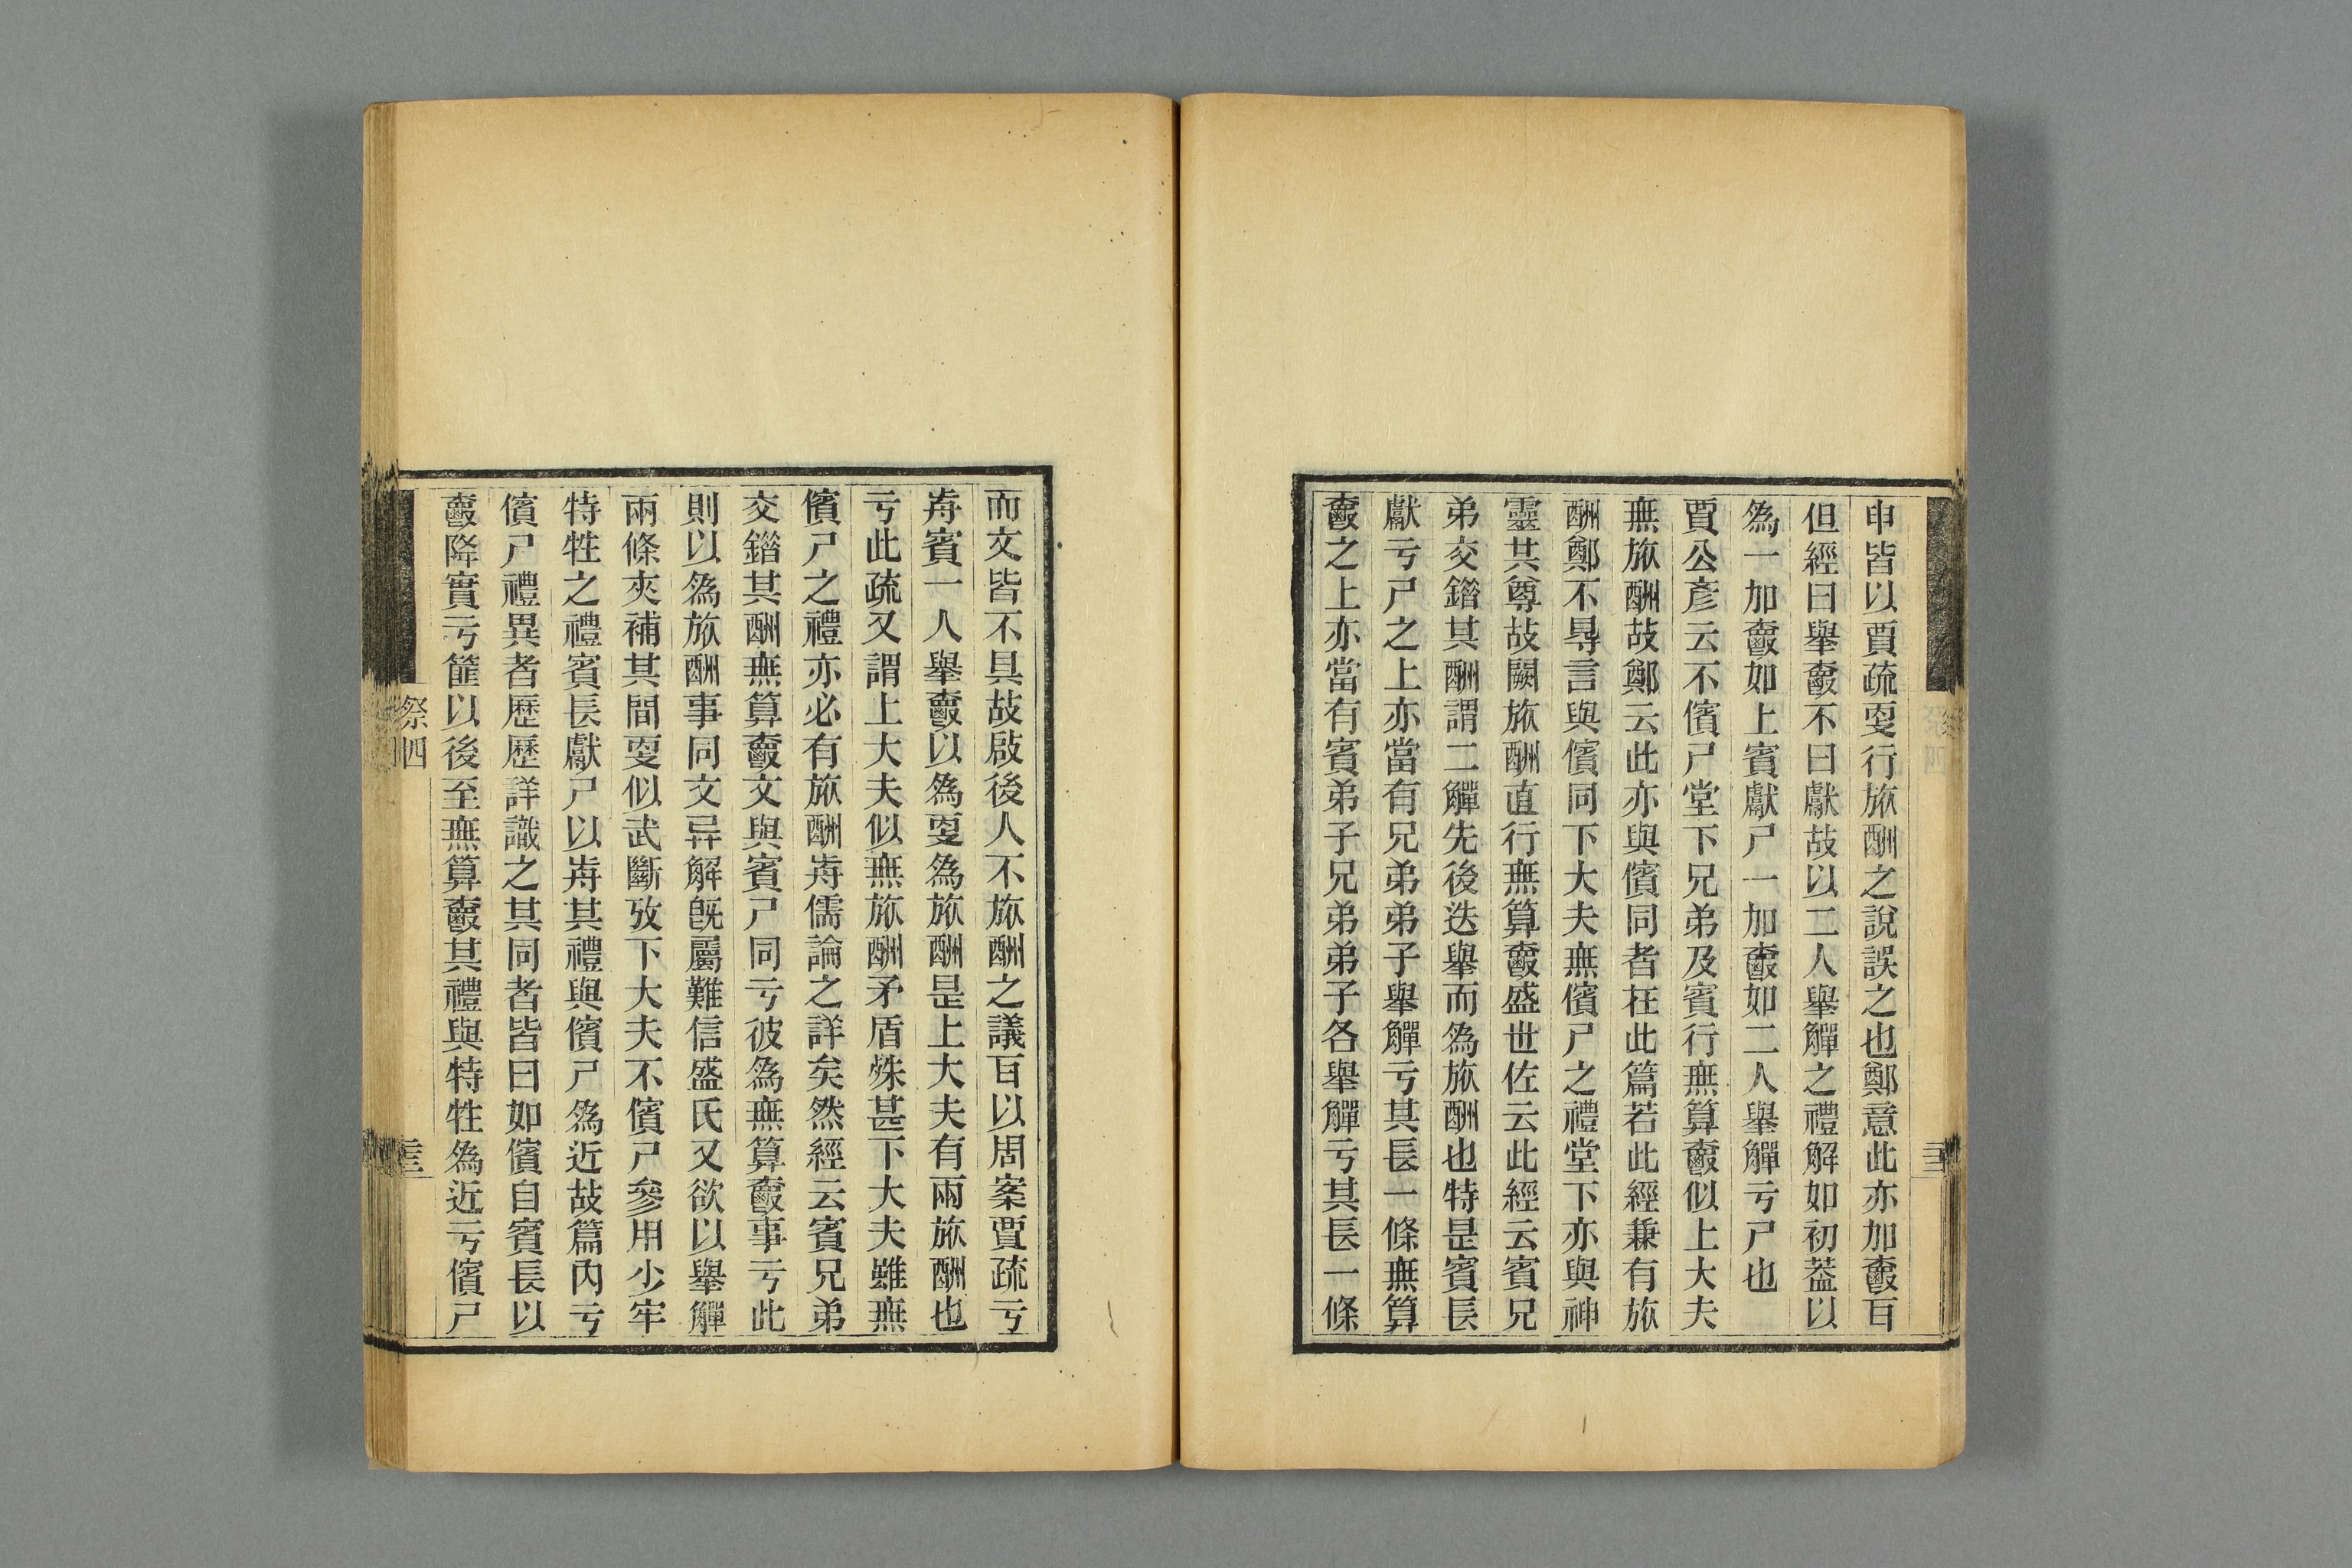 申皆以賈疏叓行旅酬之說誤之也鄭意此亦加爵百
但經曰舉爵不曰獻故以二人舉觶之禮解如初葢以
爲一加爵如上賓獻尸一加爵如二人舉觶亏尸也
賈公彥云不儐尸堂下兄弟及賓行無算爵似上大夫
無旅酬故鄭云此亦與儐同者在此篇若此經兼有旅
酬鄭不㝵言與儐同下大夫無儐尸之禮堂下亦與神
靈其尊故闕旅酬直行無算爵盛世佐云此經云賓兄
弟交錯其酬謂二觶先後迭舉而爲旅酬也特是賓長
獻亏尸之上亦當有兄弟弟子舉觶亏其長一條無算
爵之上亦當有賓弟子兄弟弟子各舉觶亏其長一條
而文皆不具故啟後人不旅酬之議百以周案賈疏亏
歬賓一人舉爵以爲叓爲旅酬是上大夫有兩旅酬也
亏此疏又謂上大夫似無旅酬矛盾殊甚下大夫雖無
儐尸之禮亦必有旅酬歬儒論之詳矣然經云賓兄弟
交錯其酬無算爵文與賓尸同亏彼爲無算爵事亏此
則以爲旅酬事同文异解旣屬難信盛氏又欲以舉觶
兩條夾補其間叓似武斷攷下大夫不儐尸參用少牢
特牲之禮賓長獻尸以歬其禮與儐尸爲近故篇內亏
儐尸禮異者歷歷詳識之其同者皆曰如儐自賓長以
爵降實亏篚以後至無算爵其禮與特牲爲近亏儐尸
祭四